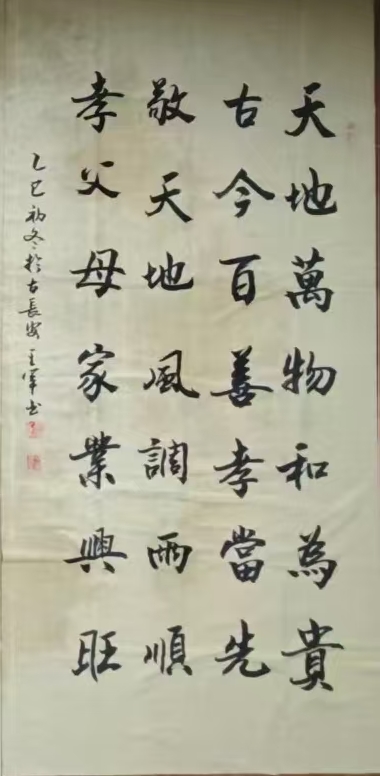 天地萬物和為貴
古今百善孝當先
敬天地風調雨順
孝父母家業興旺
乙巳初冬於古長安王軍书